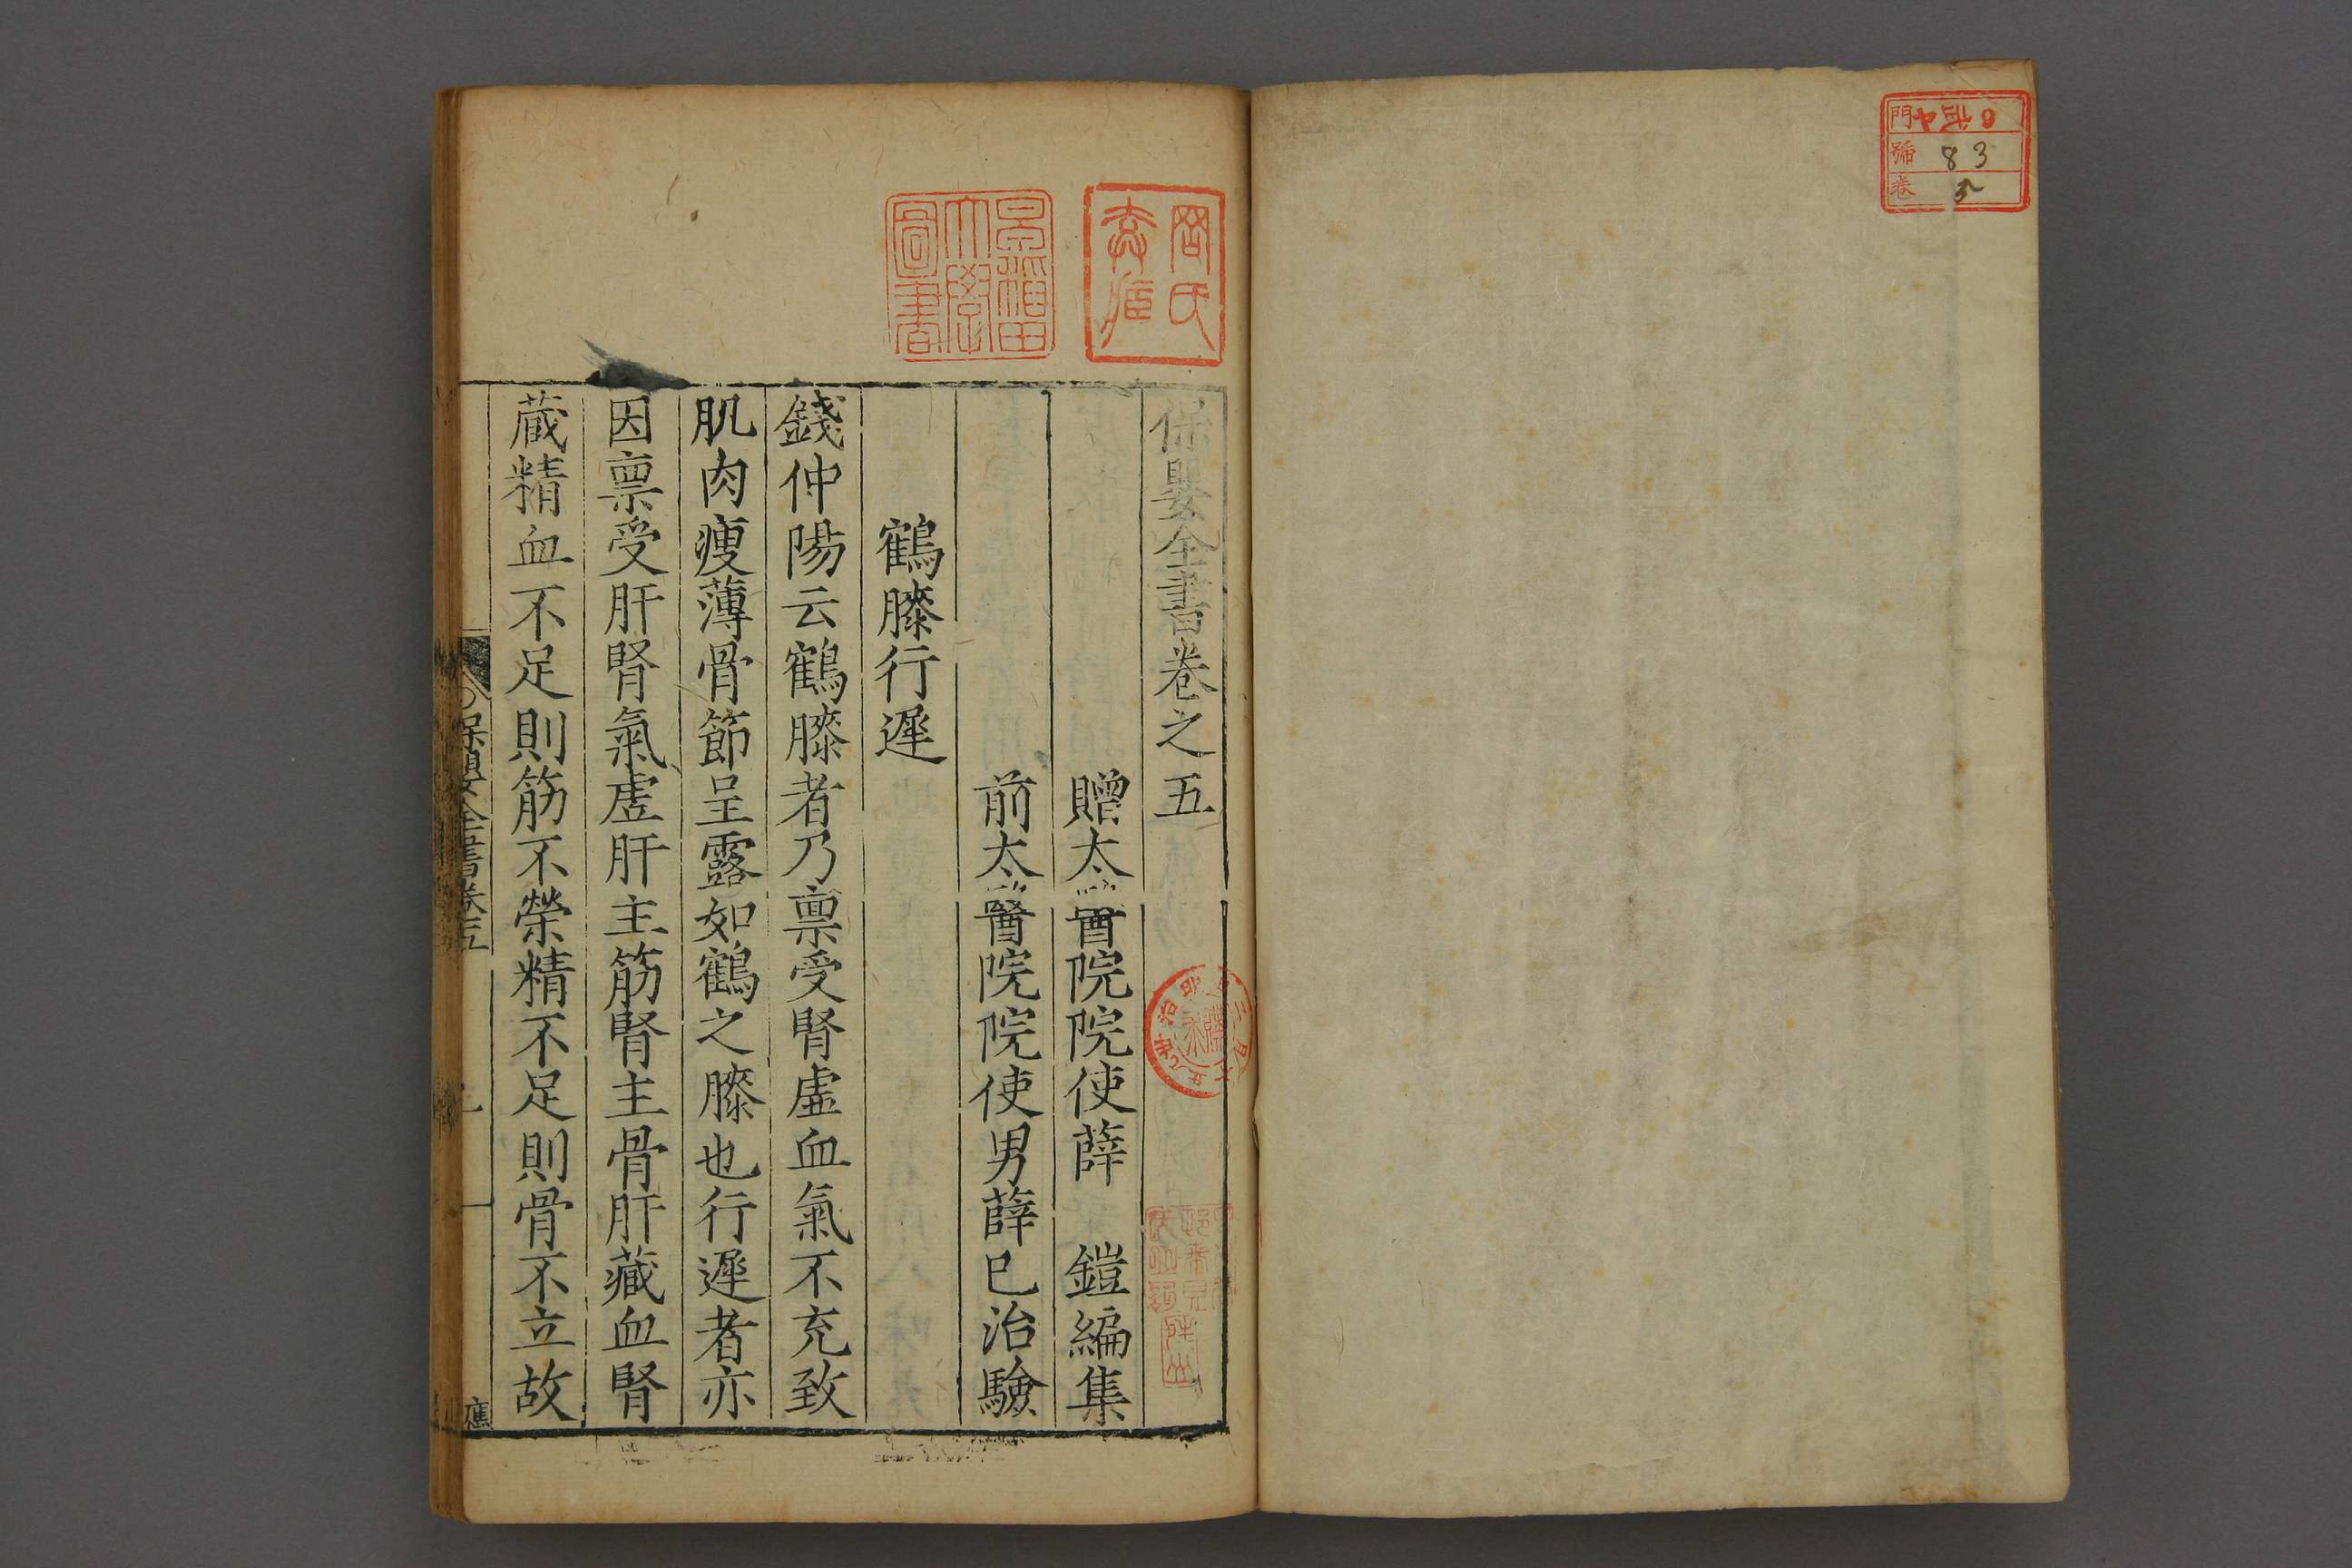 門
號 83
卷 5
早稲田大學圖書
岡氏
保嬰全書卷之五
贈太醫院院使薛 鎧編集
前太醫院院使男薛已治驗
鶴膝行遲
錢仲陽云鶴膝者乃禀受腎虛血氣不充致
肌肉瘦薄骨節呈露如鶴之膝也行遲者亦
因禀受肝腎氣虛肝主筋腎主骨肝藏血腎
蔵精血不足則筋不榮精不足則骨不立故
保嬰全書卷五